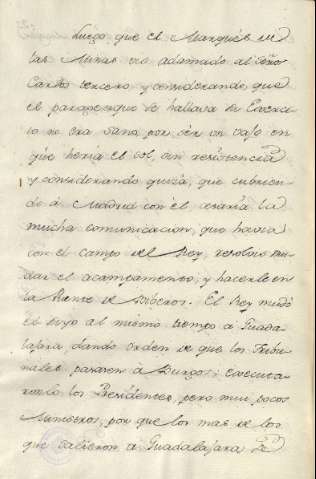 Luego que el Marqués de
las Minas vio aclamado al Señor
Carlos tercero, y considerando que
el parage que se hallava su Exerci
to no era sano por ser un vajo en
que heria el sol, sin resistencia
y considerando quizá, que subien
do á Madrid con él cesaría la
mucha comunicacion, que havia
con el campo del Rey, resolvio mu
dar el acampamento, y hacerle en
la Puente de Viberos. El Rey mudó
el suyo al mismo tiempo á Guada
lajara, dando orden de que los Tribu
nales pasasen á Burgos: executa
ronlo los Presidentes, pero mui pocos
Ministros; por que los mas de los
que salieron á Guadalajara se